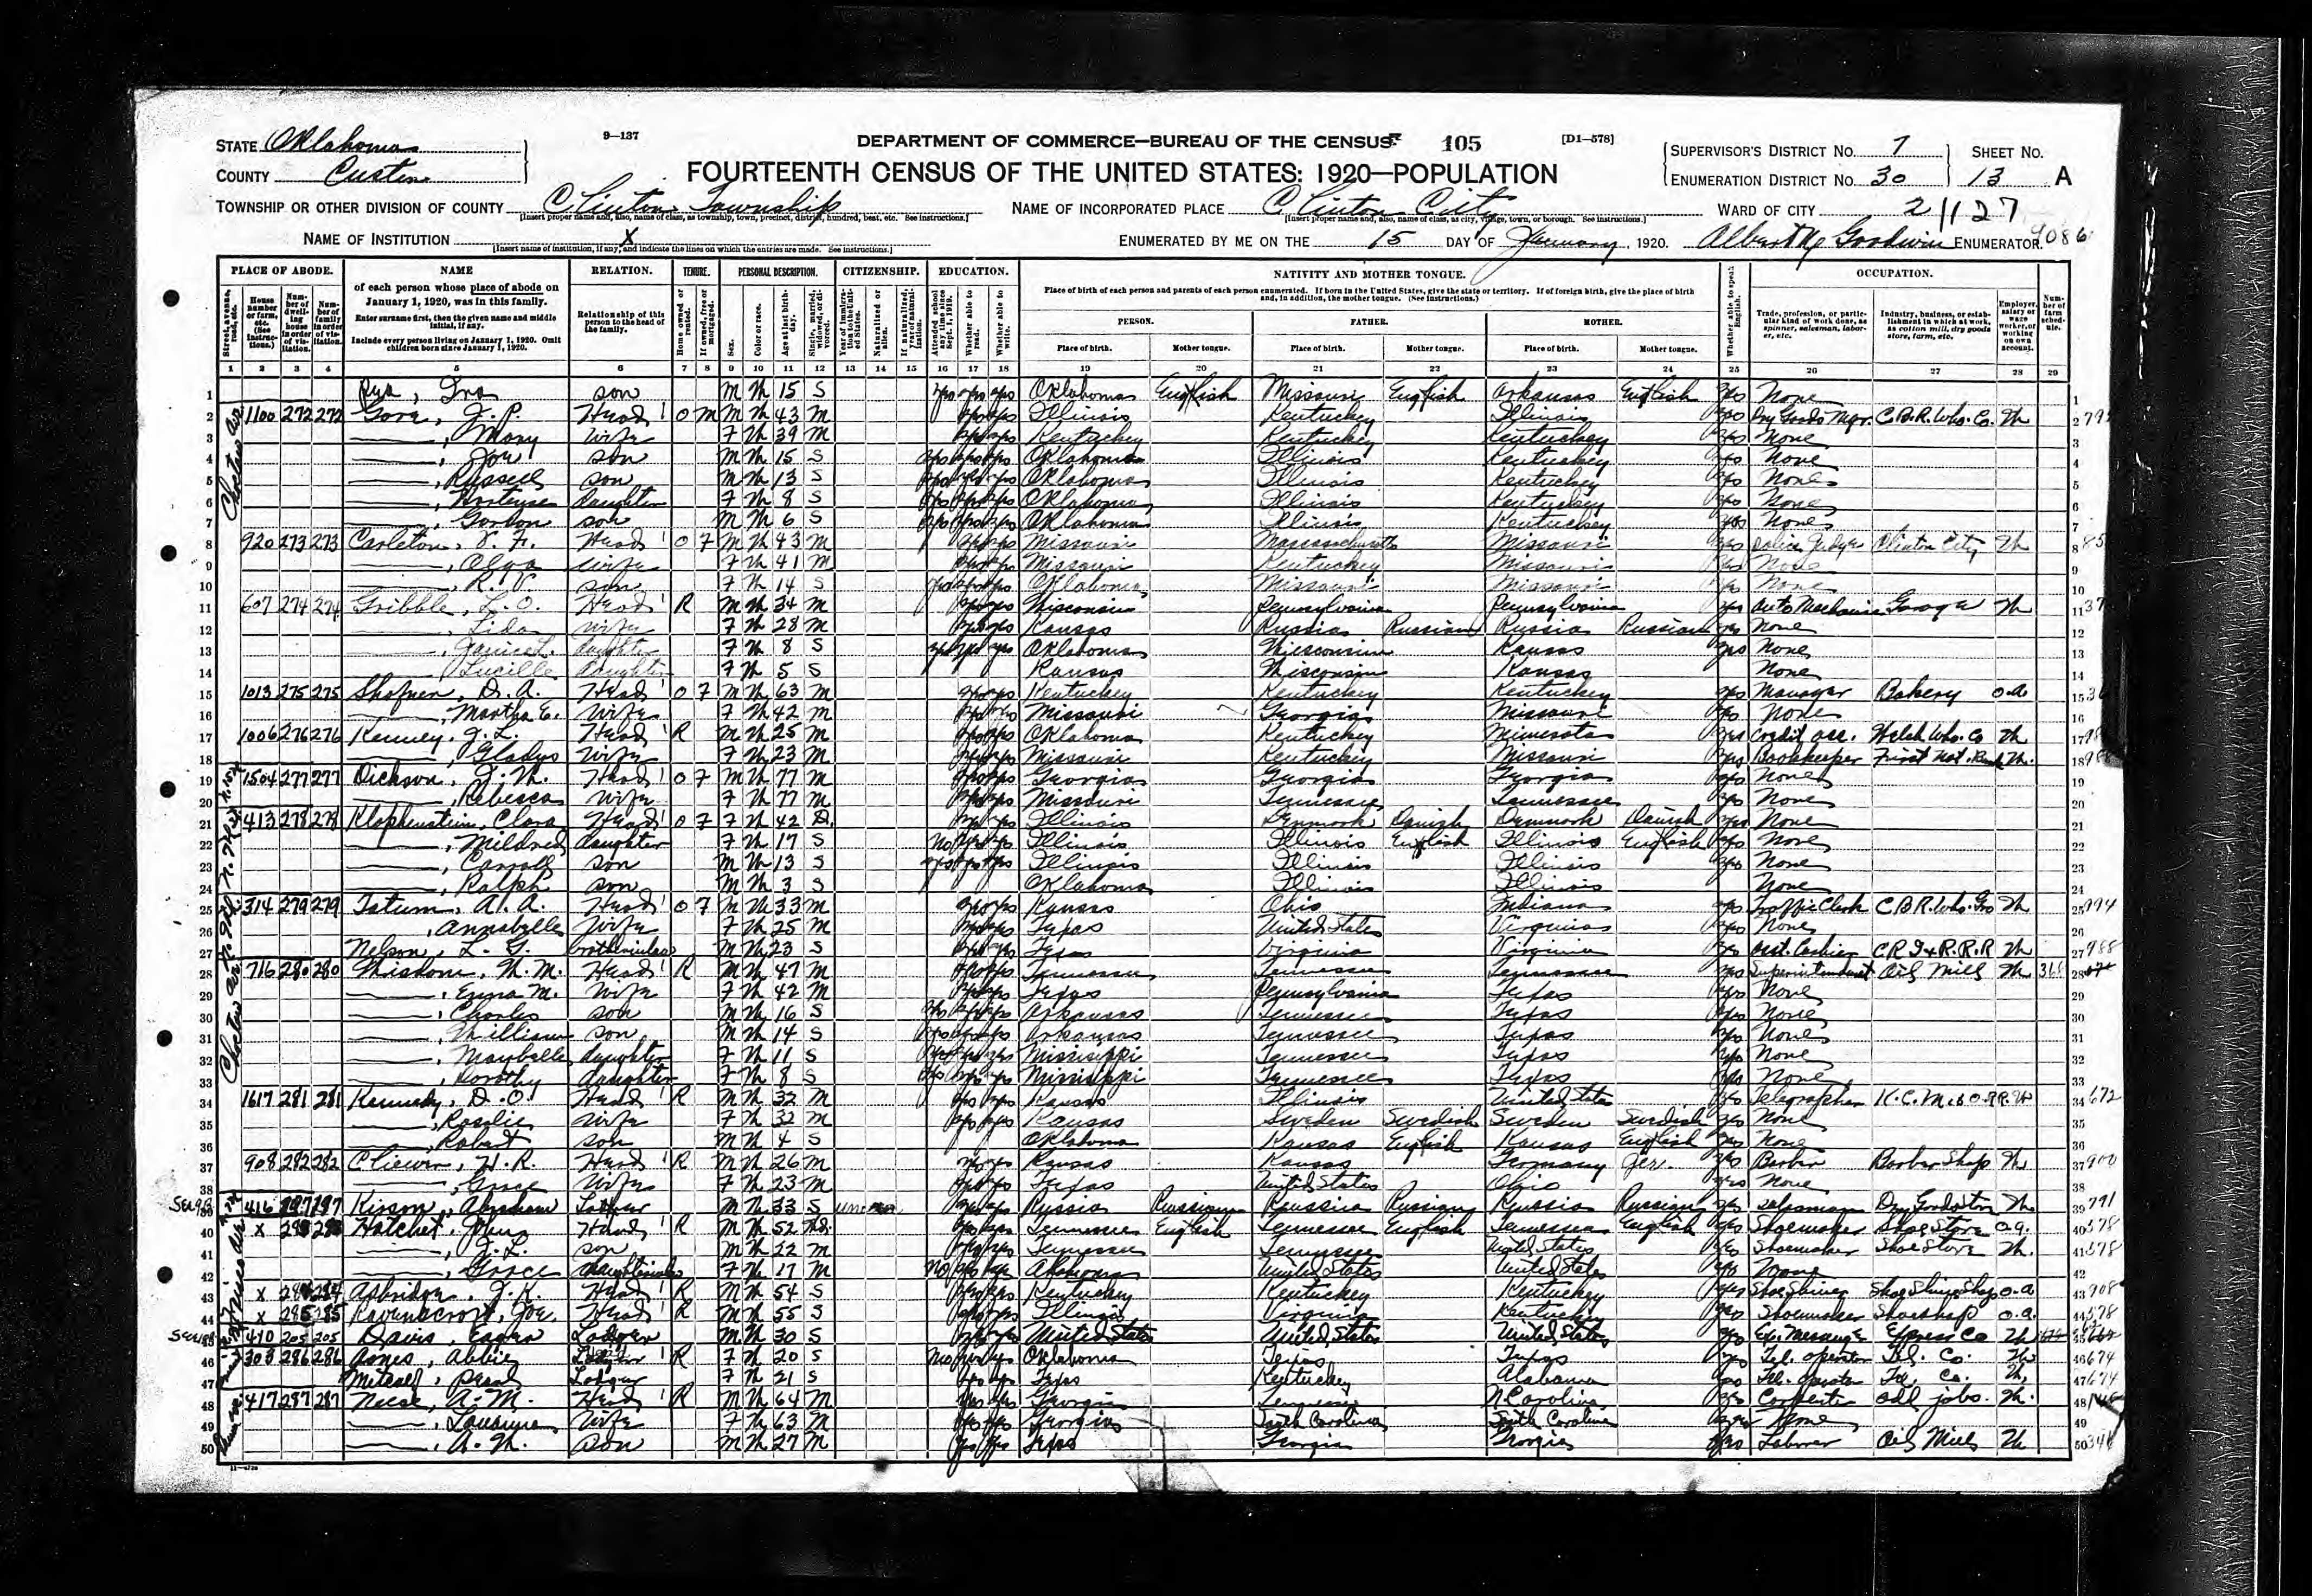 9—137
DEPARTMENT OF COMMERCE—BUREAU OF THE CENSUS
105
[D1—578]
STATE Oklahoma
COUNTY Custer
FOURTEENTH CENSUS OF THE UNITED STATES: 1920—POPULATION
SUPERVISOR'S DISTRICT No. 7
ENUMERATION DISTRICT No. 30
SHEET No. 13 A
TOWNSHIP OR OTHER DIVISION OF COUNTY Clinton Township
[Insert proper name and, also, name of class, as township, town, precinct, district, hundred, beat, etc. See instructions.]
NAME OF INCORPORATED PLACE Clinton City
[Insert proper name and, also, name of class, as city, village, town, or borough. See instructions.]
WARD OF CITY 2 1127
NAME OF INSTITUTION X
[Insert name of institution, if any, and indicate the lines on which the entries are made. See instructions.]
ENUMERATED BY ME ON THE 15 DAY OF January, 1920. Goodwin ENUMERATOR.
PLACE OF ABODE. NAME RELATION. TENURE. PERSONAL DESCRIPTION. CITIZENSHIP. EDUCATION. NATIVITY AND MOTHER TONGUE. OCCUPATION.
of each person whose place of abode on January 1, 1920, was in this family.
Enter surname first, then the given name and middle initial, if any.
Include every person living on January 1, 1920. Omit children born since January 1, 1920.
Relationship of this person to the head of the family.
Place of birth of each person and parents of each person enumerated. If born in the United States, give the state or territory. If of foreign birth, give the place of birth and, in addition, the mother tongue. (See instructions.)
PERSON. FATHER. MOTHER.
Place of birth. Mother tongue. Place of birth. Mother tongue. Place of birth. Mother tongue.
1 2 3 4 5 6 7 8 9 10 11 12 13 14 15 16 17 18 19 20 21 22 23 24 25 26 27 28 29
1 Ira son M W 15 S yes yes yes Oklahoma English Missouri English Arkansas English yes None
2 1100 272 272 Gore, J. P. Head O M M W 43 M yes yes Illinois Kentucky Illinois yes Dry Goods Mgr. C.B.R. Who. Co. W
3 , Mary wife F W 39 M yes yes Kentucky Kentucky Kentucky yes None
4 , Joe son M W 15 S yes yes yes Oklahoma Illinois Kentucky yes None
5 , Russell son M W 13 S yes yes yes Oklahoma Illinois Kentucky yes None
6 , Hortense daughter F W 8 S yes yes yes Oklahoma Illinois Kentucky yes None
7 , Gordon son M W 6 S yes yes yes Oklahoma Illinois Kentucky yes None
8 920 273 273 Carleton, V. F. Head O F M W 43 M yes yes Missouri Massachusetts Missouri yes Police Judge Clinton City W
9 , Olga wife F W 41 M yes yes Missouri Kentucky Missouri yes None
10 , R. V. son F W 14 S yes yes yes Oklahoma Missouri Missouri yes None
11 607 274 274 Gribble, L. O. Head R M W 34 M yes yes Wisconsin Pennsylvania Pennsylvania yes Auto Mechanic Garage W
12 , Lida wife F W 28 M yes yes Kansas Russia Russian Russia Russian yes None
13 , Janice L. daughter F W 8 S yes yes yes Oklahoma Wisconsin Kansas yes None
14 , Lucille daughter F W 5 S Kansas Wisconsin Kansas None
15 1013 275 275 Shofner, D. A. Head O F M W 63 M yes yes Kentucky Kentucky Kentucky yes Manager Bakery O.A.
16 , Martha E. wife F W 42 M yes yes Missouri Georgia Missouri yes None
17 1006 276 276 Kenney, J. L. Head R M W 25 M yes yes Oklahoma Kentucky Minnesota yes Credit Acc. Welch Who. Co W
18 , Gladys wife F W 23 M yes yes Missouri Kentucky Missouri yes Bookkeeper First Nat. Bank W.
19 1504 277 277 Dickson, J. W. Head O F M W 77 M yes yes Georgia Georgia Georgia yes None
20 , Rebecca wife F W 77 M yes yes Missouri Tennessee Tennessee yes None
21 413 278 278 Klophenstein, Clara Head O F F W 42 D. yes yes Illinois Denmark Danish Denmark Danish yes None
22 , Mildred daughter F W 17 S No yes yes Illinois Illinois English Illinois English yes None
23 , Carroll son M W 13 S yes yes yes Illinois Illinois Illinois yes None
24 , Ralph son M W 3 S Oklahoma Illinois Illinois None
25 314 279 279 Tatum, A. A. Head O F M W 33 M yes yes Kansas Ohio Indiana yes Traffic Clerk C B R. Who. Gro W
26 , Annabelle wife F W 25 M yes yes Texas United States Virginia yes None
27 Nelson, L. G. brotherinlaw M W 23 S yes yes Texas Virginia Virginia yes Asst. Cashier C R I & P. R. R W 988
28 716 280 280 Chisholm, W. M. Head R M W 47 M yes yes Tennessee Tennessee Tennessee yes Superintendent Oil Mill W
29 , Emma M. wife F W 42 M yes yes Texas Pennsylvania Texas yes None
30 , Charles son M W 16 S yes yes yes Arkansas Tennessee Texas yes None
31 , William son M W 14 S yes yes yes Arkansas Tennessee Texas yes None
32 , Maybelle daughter F W 11 S yes yes yes Mississippi Tennessee Texas yes None
33 , Dorothy daughter F W 8 S yes yes yes Mississippi Tennessee Texas yes None
34 1617 281 281 Kennedy, D. O. Head R M W 32 M yes yes Kansas Illinois United States yes Telegrapher K. C. M. & O. R.R. W 672
35 , Rosalie wife F W 32 M yes yes Kansas Sweden Swedish Sweden Swedish yes None
36 , Robert son M W 4 S Oklahoma Kansas English Kansas English yes None
37 908 282 282 Cliewer, H. R. Head R M W 26 M yes yes Kansas Kansas Germany Ger. yes Barber Barber Shop W 900
38 , Grace wife F W 23 M yes yes Texas United States Ohio yes None
39 416 197 197 Kirson, Abraham Lodger M W 33 S yes yes Russia Russian Russia Russian Russia Russian yes Salesman Dry Goods Store W 791
40 X Hatchet, John Head R M W 52 Wd. yes yes Tennessee English Tennessee English Tennessee English yes Shoemaker Shoe Store O.A. 578
41 , J. L. son M W 22 M yes yes Tennessee Tennessee United States yes Shoemaker Shoe Store W. 578
42 , Grace daughterinlaw F W 17 M No yes yes United States United States yes None
43 X 284 284 Asbridge, J. K. Head R M W 54 S yes yes Kentucky Kentucky Kentucky yes Shoe Shiner Shoe Shine Shop O.A 908
44 X 285 285 Ravenscroft, Joe Head R M W 55 S yes yes Illinois Virginia Kentucky yes Shoemaker Shoeshop O.A. 578
45 410 205 205 Davis, Lodger M W 30 S yes yes United States United States United States yes Ex. Messenger Express Co W
46 303 286 286 Jones, Abbie R F W 20 S No yes yes Oklahoma Texas Texas yes Tel. operator Tel. Co. W 674
47 Metcalf, Pearl Lodger F W 21 S yes yes Texas Kentucky Alabama yes Tel. operator Tel. Co. W. 674
48 417 287 287 Neese, A. M. Head R M W 64 M yes yes Georgia Tennessee N Carolina yes Carpenter odd jobs. W.
49 wife F W 63 M yes yes Georgia South Carolina South Carolina yes None
50 , A. W. son M W 27 M yes yes Texas Georgia Georgia yes Laborer Oil Mill W